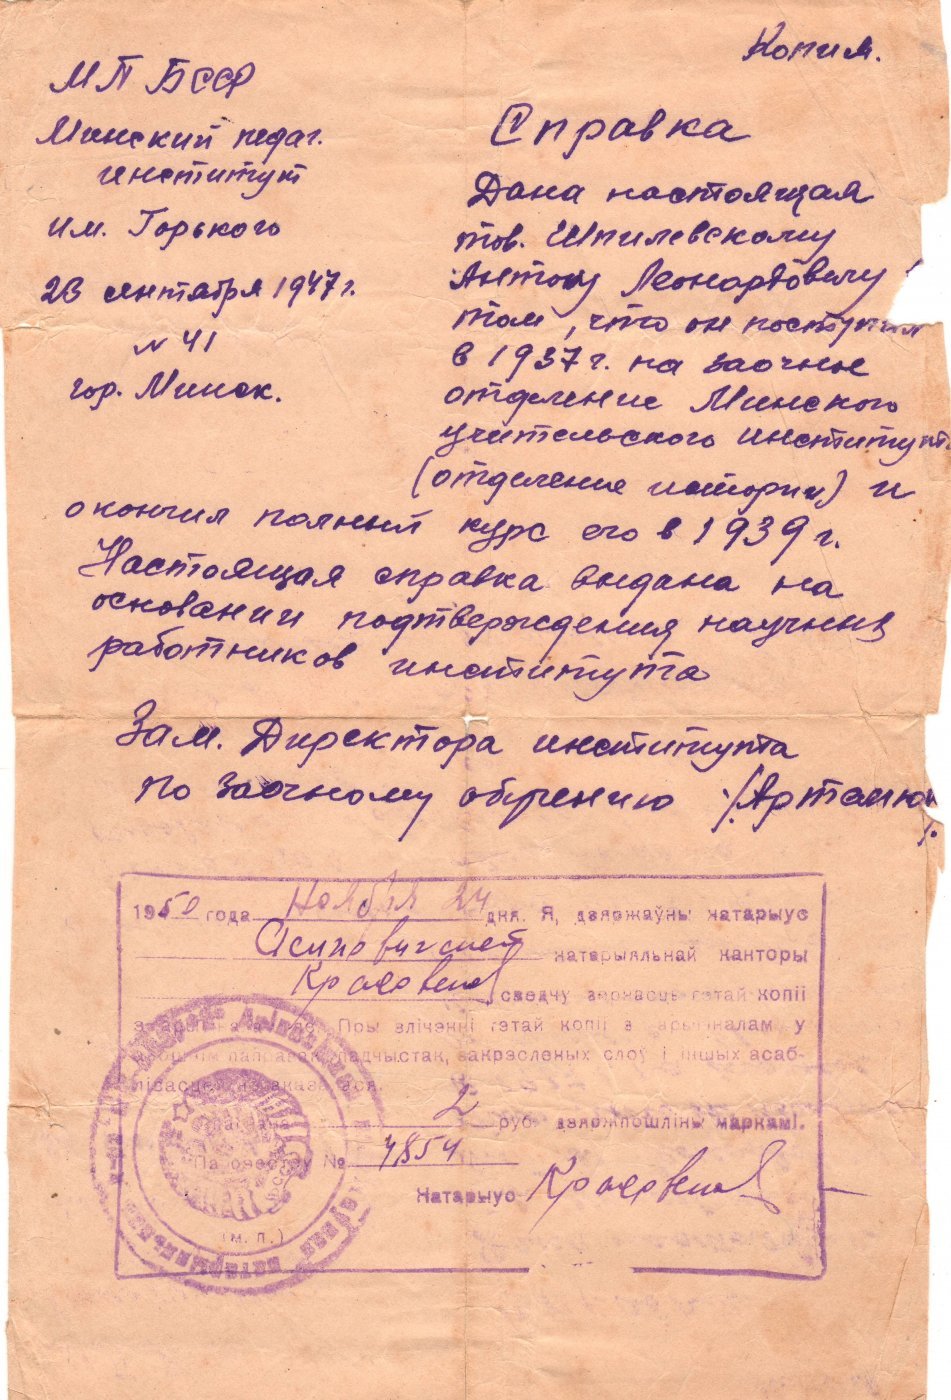 Копия.
МП БССР
Минский педаг.
институт
им. Горького
23 сентября 1947 г.
№ 41
гор. Минск.
Справка
Дана настоящая
тов. Шпилевскому
Антону Леонардовичу
том, что он поступил
в 1937 г. на заочное
отделение Минского
учительского институт
(отделение истории) и
окончил полный курс его в 1939 г.
Настоящая справка выдана на
основании подтверждения научных
работников института
Зам. Директора института
по заочному обучению /Артемюк
1950 года Ноября 24 дня. Я, дзяржаўны натарыус
Асиповичской натарыяльнай канторы
сведчу вернасць гэтай копіі
Пры злічэнні гэтай копіі з арыгіналам у
падчыстак, закрэсленых слоў і іншых асаб-
лівасцей не аказалася.
2 руб. дзяржпошліны маркамі.
Па рэестру № 4854
Натарыус
(м. п.)